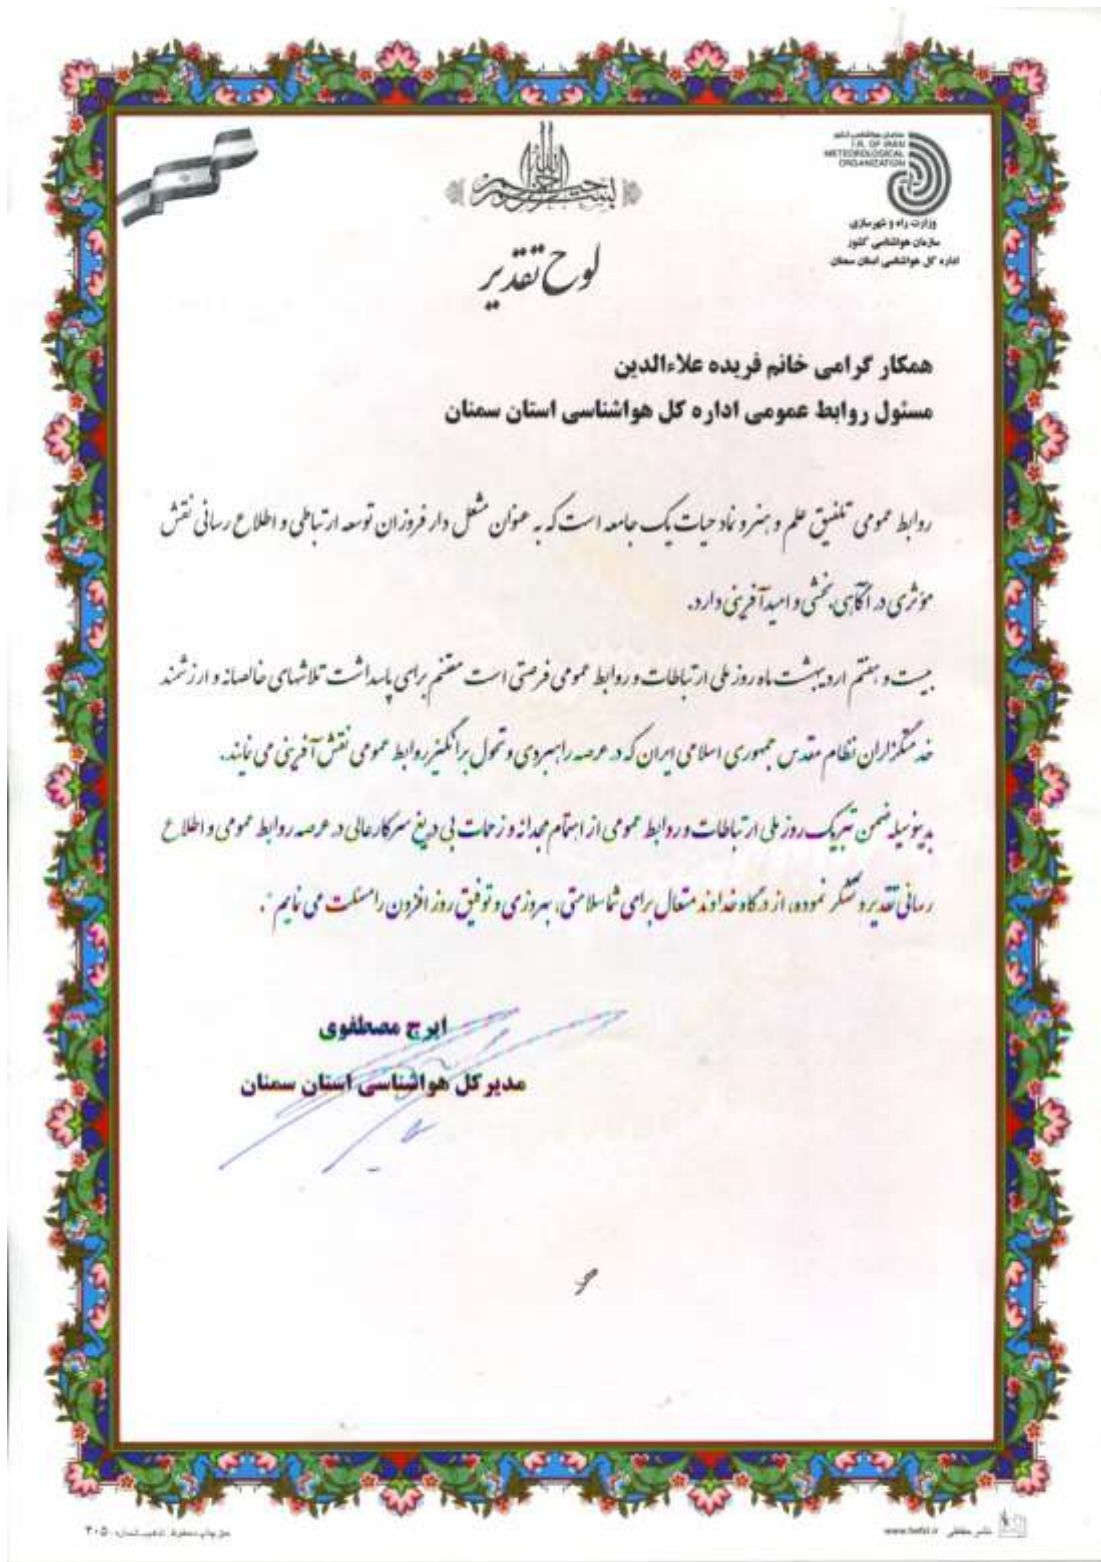 بسم الله الرحمن الرحیم
سازمان هواشناسی کشور
I.R. OF IRAN
METEOROLOGICAL
ORGANIZATION
وزارت راه و شهرسازی
سازمان هواشناسی کشور
اداره کل هواشناسی استان سمنان
لوح تقدیر
همکار گرامی خانم فریده علاءالدین
مسئول روابط عمومی اداره کل هواشناسی استان سمنان
روابط عمومی تلفیق علم و هنر و نماد حیات یک جامعه است که به عنوان مشعل دار فروزان توسعه ارتباطی و اطلاع رسانی نقش
مؤثری در آگاهی بخشی و امیدآفرینی دارد.
بیست و هفتم اردیبهشت ماه روز ملی ارتباطات و روابط عمومی فرصتی است مغتنم برای پاسداشت تلاشهای خالصانه و ارزشمند
خدمتگزاران نظام مقدس جمهوری اسلامی ایران که در عرصه راهبردی و تحول برانگیز روابط عمومی نقش آفرینی می نمایند.
بدینوسیله ضمن تبریک روز ملی ارتباطات و روابط عمومی از اهتمام مجدانه و زحمات بی دریغ سرکارعالی در عرصه روابط عمومی و اطلاع
رسانی تقدیر و تشکر نموده، از درگاه خداوند متعال برای شما سلامتی، بهروزی و توفیق روز افزون را مسئلت می نمایم.
ایرج مصطفوی
مدیر کل هواشناسی استان سمنان
حق چاپ محفوظ. تذهیب شماره ۴۰۵۰